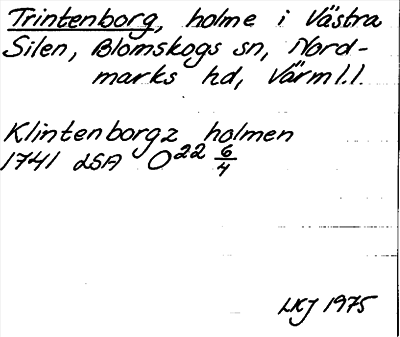 Trintenborg, holme i Västra
Silen, Blomskogs sn, Nord-
marks hd, Värml.l.
Klintenborgz holmen
1741 LSA O22 6/4
LKJ 1975